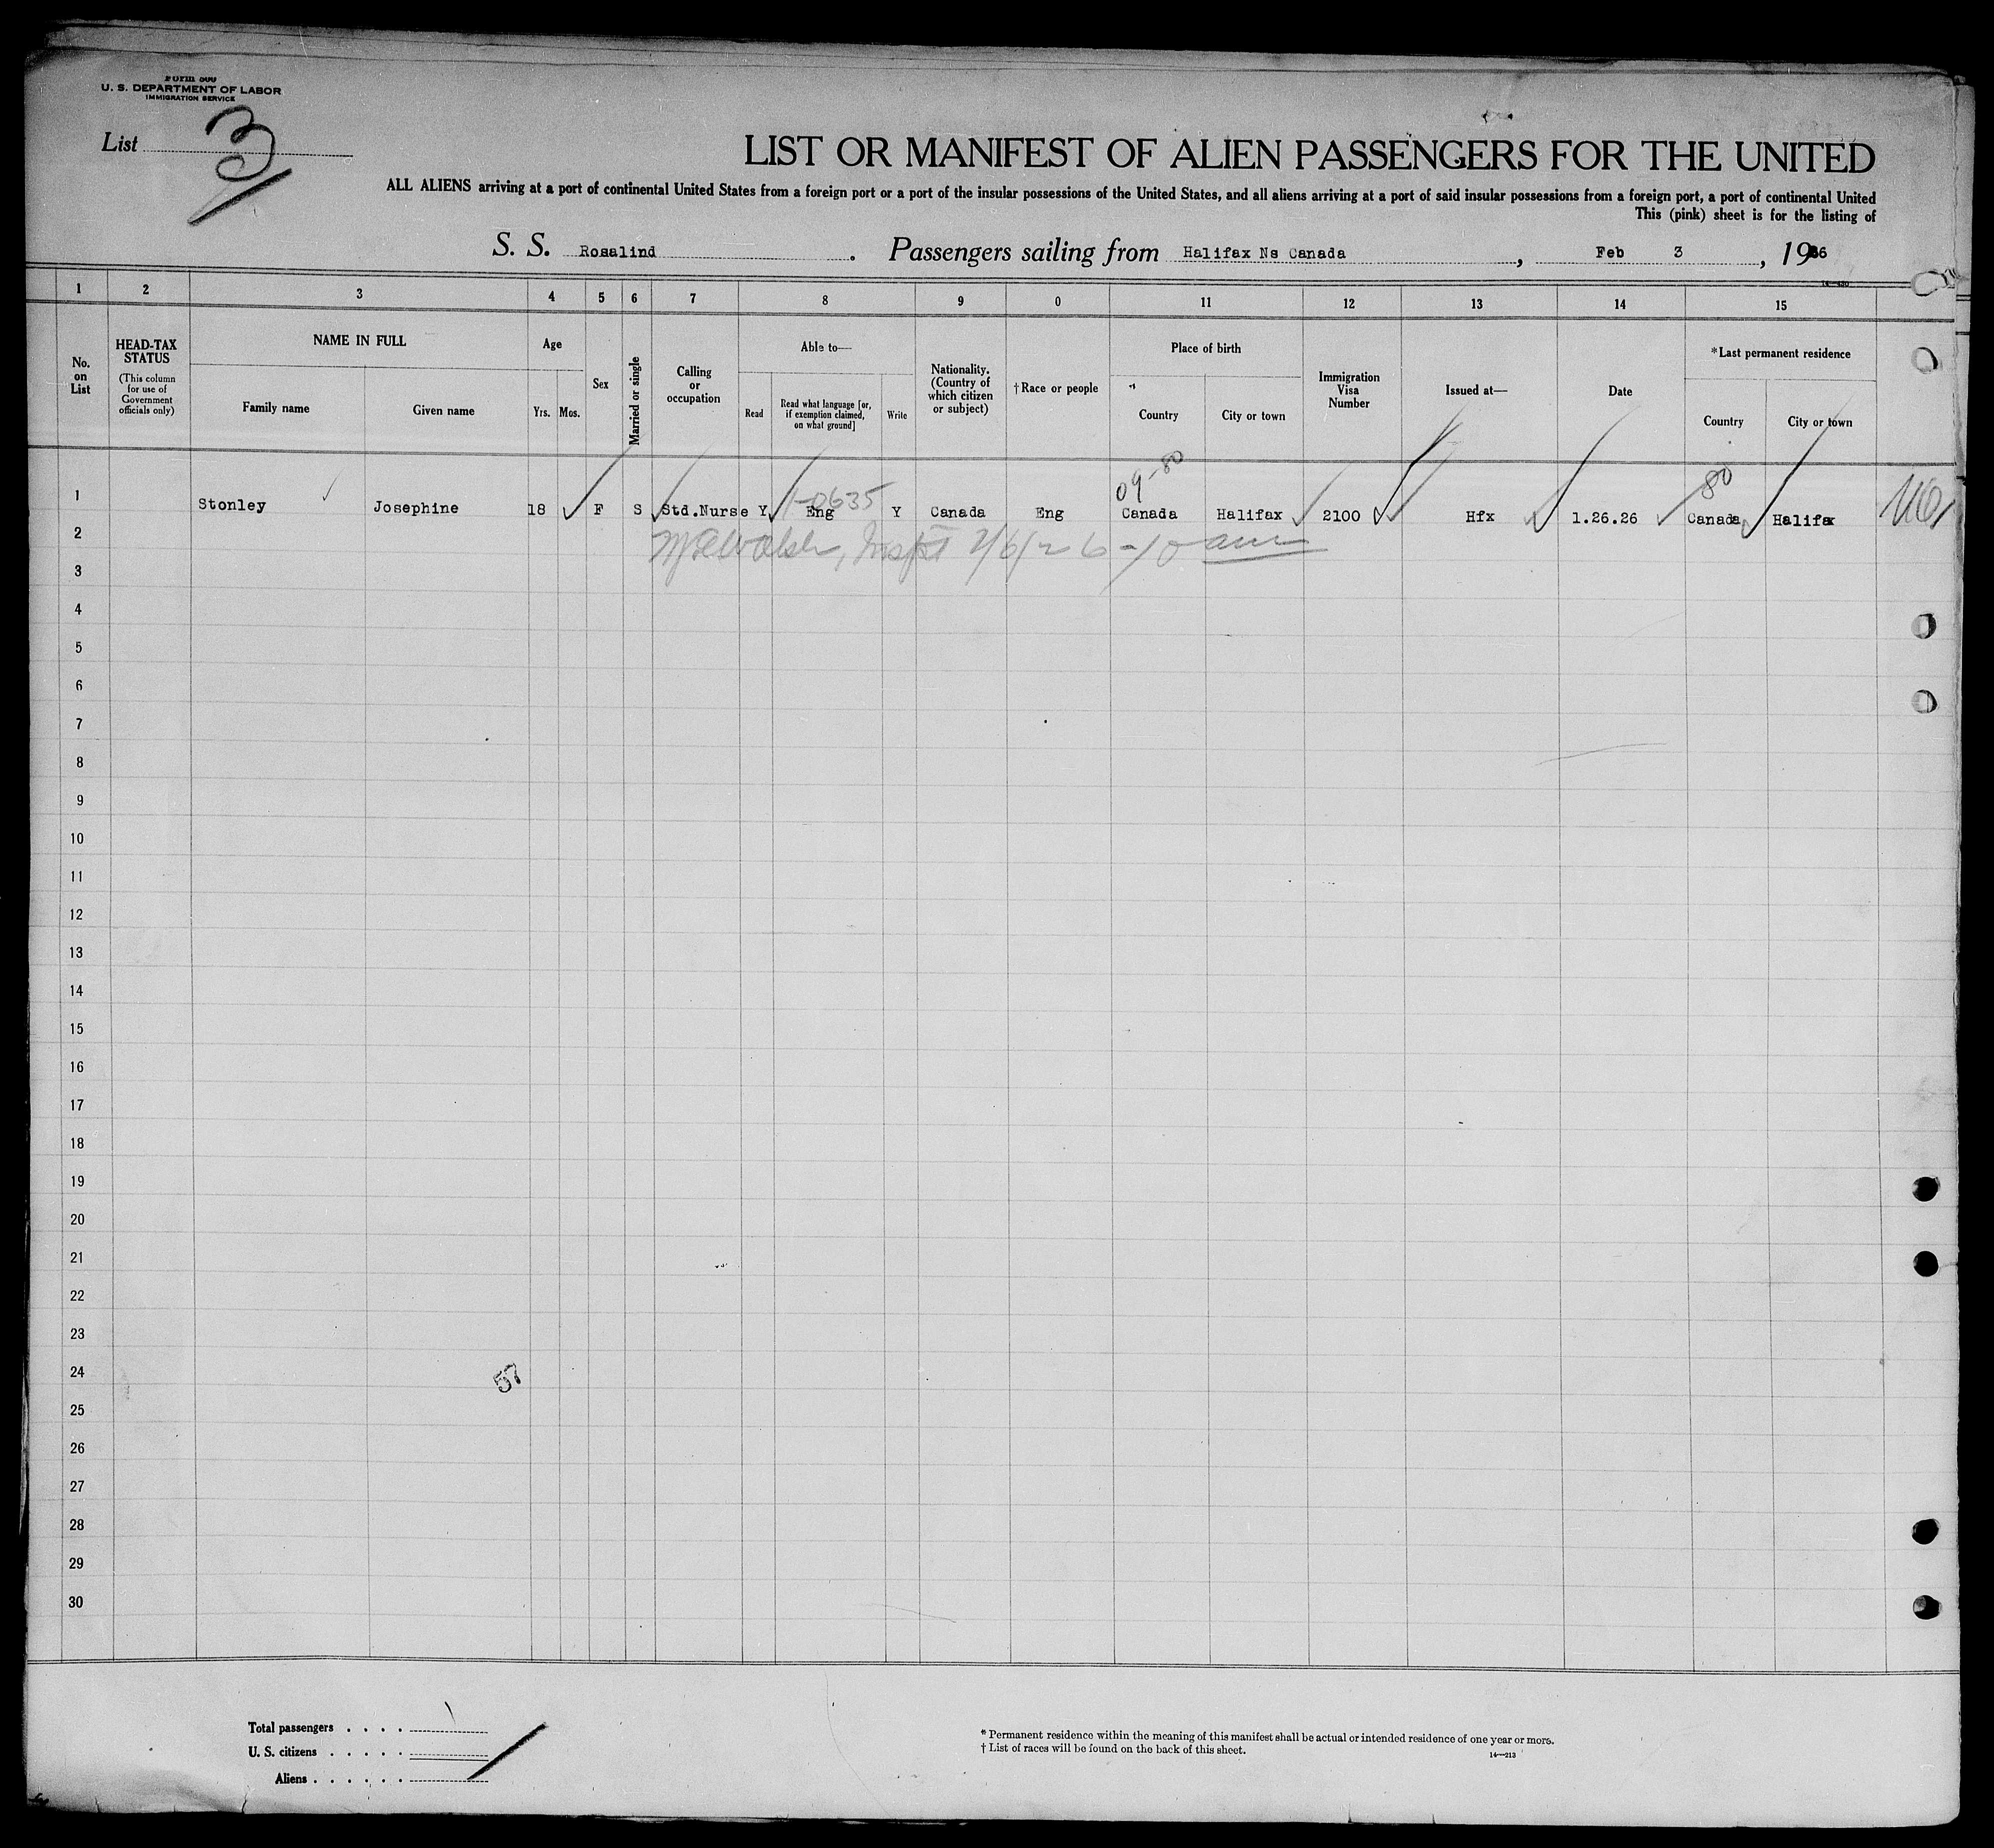 Form 500
U. S. DEPARTMENT OF LABOR
IMMIGRATION SERVICE
List 3
LIST OR MANIFEST OF ALIEN PASSENGERS FOR THE UNITED
ALL ALIENS arriving at a port of continental United States from a foreign port or a port of the insular possessions of the United States, and all aliens arriving at a port of said insular possessions from a foreign port, a port of continental United
This (pink) sheet is for the listing of
S. S. Rosalind . Passengers sailing from Halifax Ns Canada , Feb 3 , 19
1 2 3 4 5 6 7 8 9 0 11 12 13 14 15
No. on List
HEAD-TAX STATUS (This column for use of Government officials only)
NAME IN FULL
Family name Given name
Age
Yrs. Mos.
Sex
Married or single
Calling or occupation
Able to—
Read
Read what language [or, if exemption claimed, on what ground]
Write
Nationality. (Country of which citizen or subject)
† Race or people
Place of birth
Country City or town
Immigration Visa Number
Issued at—
Date
* Last permanent residence
Country City or town
1-0635 09-80 80
1 Stonley Josephine 18 F S Std.Nurse Y Eng Y Canada Eng Canada Halifax 2100 Hfx 1.26.26 Canada Halifax
2 Inspt 2/6/26 -10 am
3
4
5
6
7
8
9
10
11
12
13
14
15
16
17
18
19
20
21
22
23
24
57
25
26
27
28
29
30
Total passengers . . . .
U. S. citizens . . . . .
Aliens . . . . . .
* Permanent residence within the meaning of this manifest shall be actual or intended residence of one year or more.
† List of races will be found on the back of this sheet.
14—213